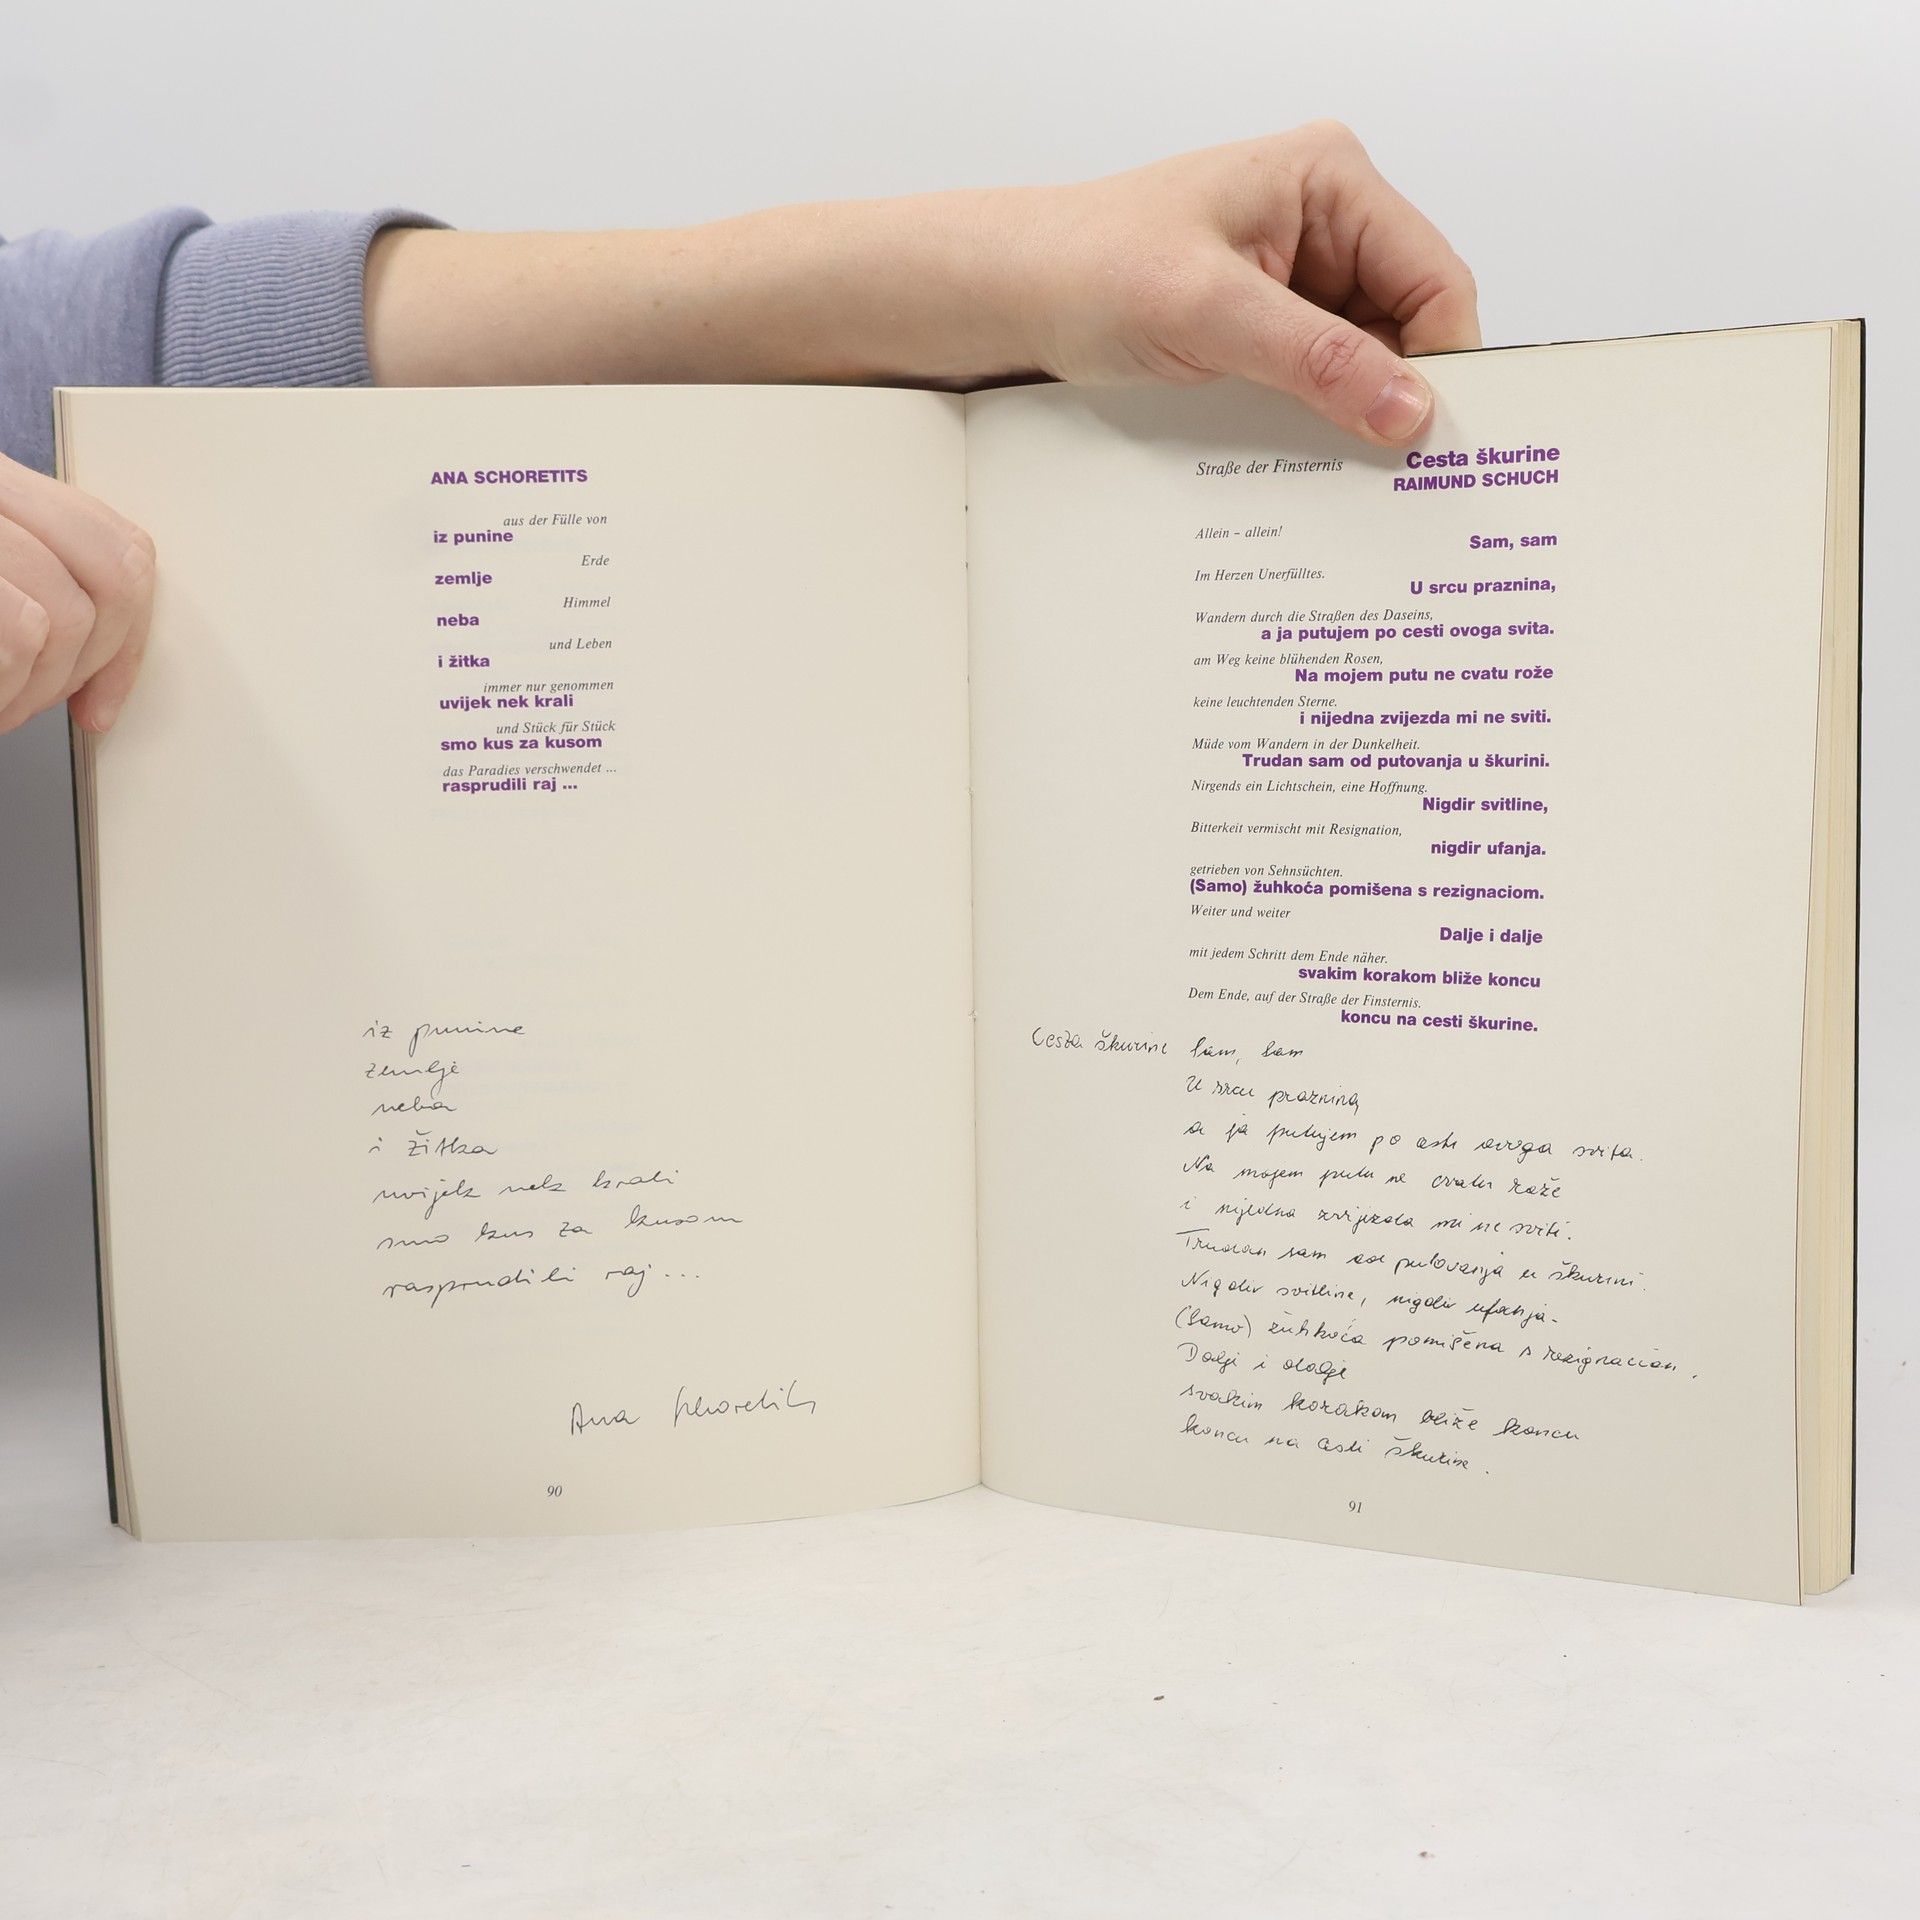 ANA SCHORETITS
aus der Fülle von
iz punine
Erde
zemlje
Himmel
neba
und Leben
i žitka
immer nur genommen
uvijek nek krali
und Stück für Stück
smo kus za kusom
das Paradies verschwendet ...
rasprudili raj ...
iz punine
zemlje
neba
i žitka
uvijek nek krali
smo kus za kusom
rasprudili raj...
Ana Schoretits
90
Straße der Finsternis
Cesta škurine
RAIMUND SCHUCH
Allein – allein!
Sam, sam
Im Herzen Unerfülltes.
U srcu praznina,
Wandern durch die Straßen des Daseins,
a ja putujem po cesti ovoga svita.
am Weg keine blühenden Rosen,
Na mojem putu ne cvatu rože
keine leuchtenden Sterne.
i nijedna zvijezda mi ne sviti.
Müde vom Wandern in der Dunkelheit.
Trudan sam od putovanja u škurini.
Nirgends ein Lichtschein, eine Hoffnung.
Nigdir svitline,
Bitterkeit vermischt mit Resignation,
nigdir ufanja.
getrieben von Sehnsüchten.
(Samo) žuhkoća pomišena s rezignaciom.
Weiter und weiter
Dalje i dalje
mit jedem Schritt dem Ende näher.
svakim korakom bliže koncu
Dem Ende, auf der Straße der Finsternis.
koncu na cesti škurine.
Cesta škurine Sam, sam
U srcu praznina,
a ja putujem po cesti ovoga svita.
Na mojem putu ne cvatu rože
i nijedna zvijezda mi ne sviti.
Trudan sam od putovanja u škurini.
Nigdir svitline, nigdir ufanja.
(Samo) žuhkoća pomišena s rezignaciom.
Dalje i dalje
svakim korakom bliže koncu
koncu na cesti škurine.
91